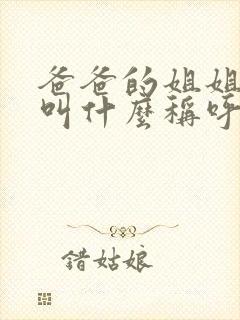 爸爸的姐姐
叫什麼稱呼
錯姑娘